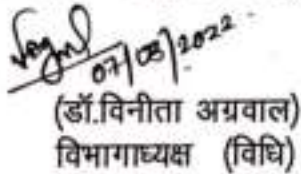 07/08/2022
(डॉ.विनीता अग्रवाल)
विभागाध्यक्ष (विधि)